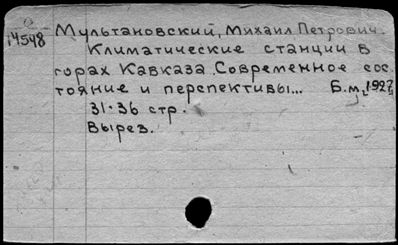 14548
Мультановский, Михаил Петрович.
Климатические станции в
горах Кавказа. Современное сос-
тояние и перспективы... Б.м., 1927,
31-36 стр.
Вырез.